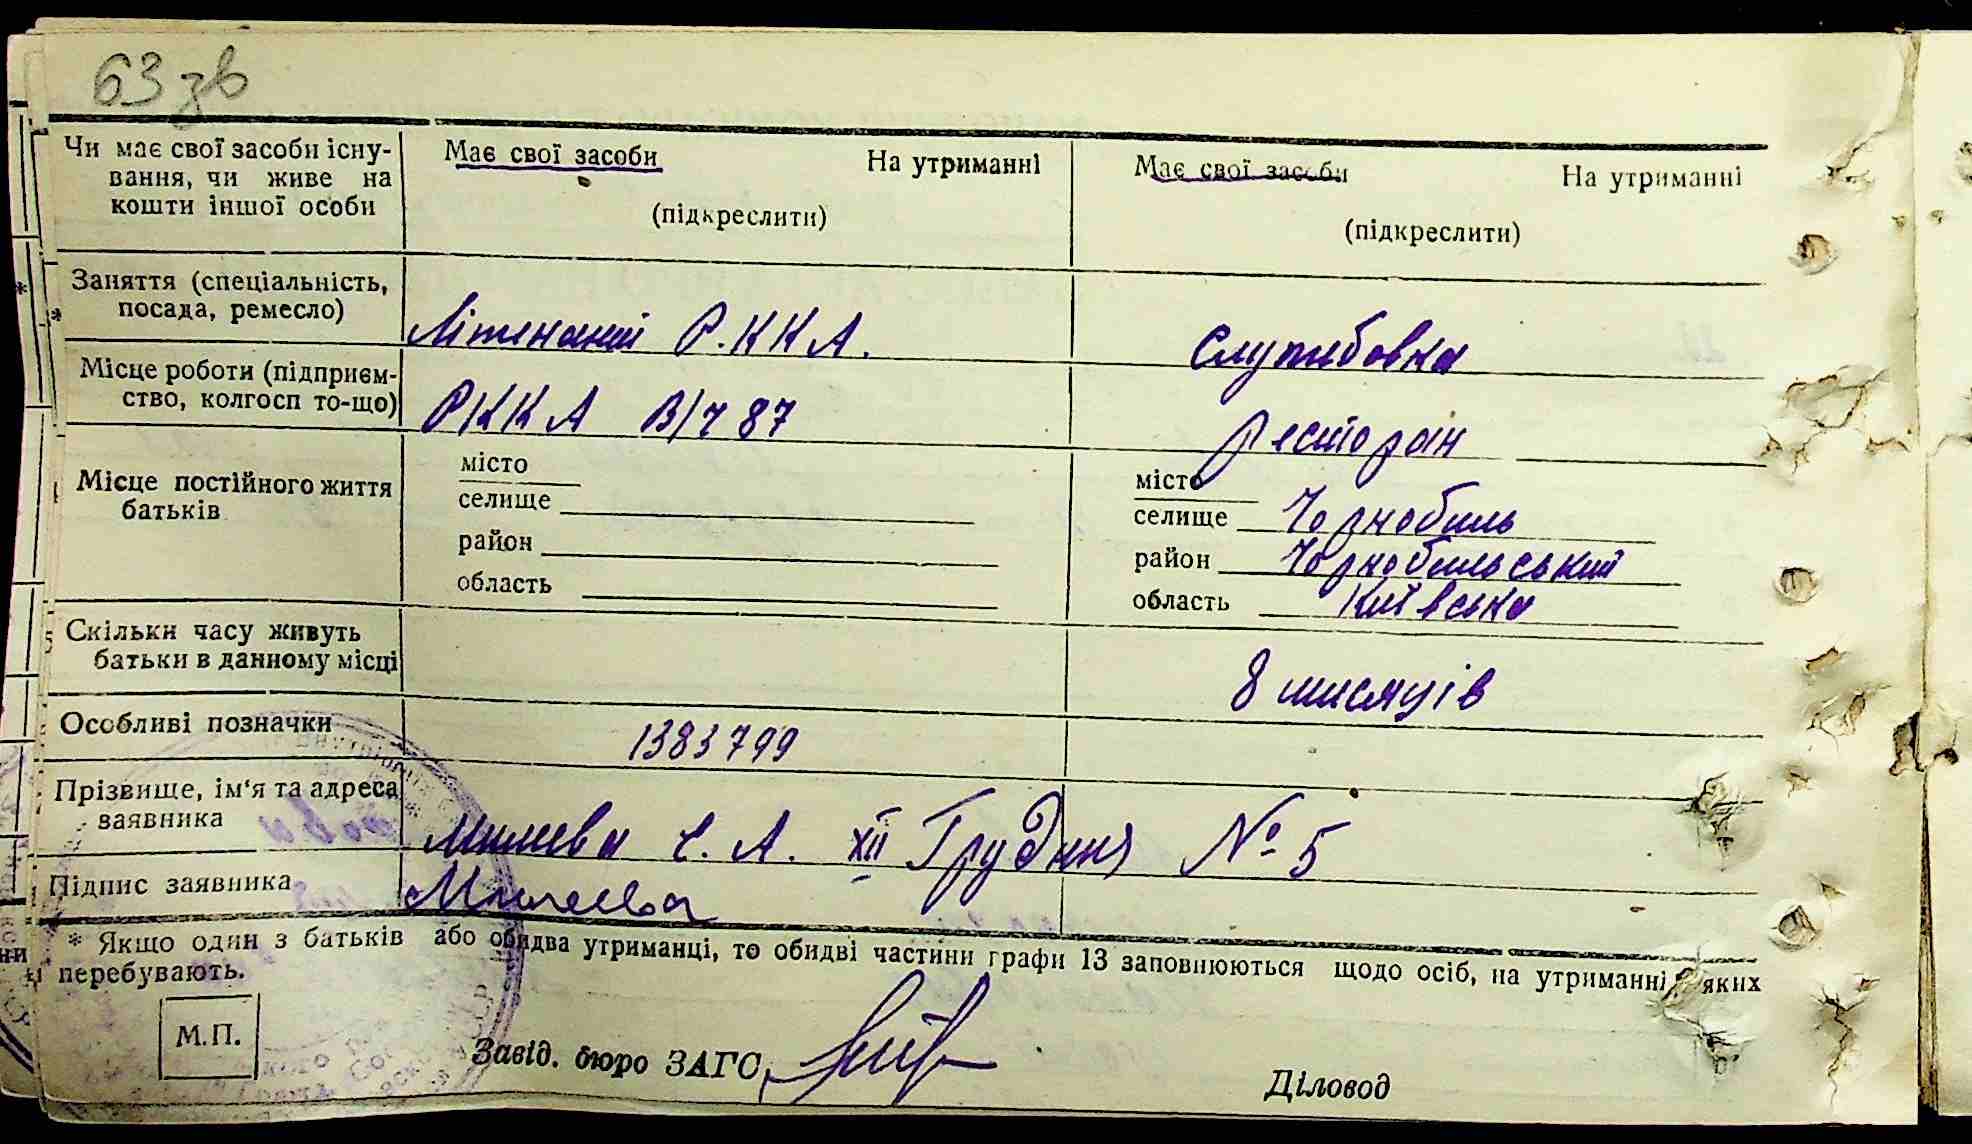 63 зв
Чи має свої засоби існу-
вання, чи живе на
кошти іншої особи
Має свої засоби На утриманні
(підкреслити)
Має свої засоби На утриманні
(підкреслити)
Заняття (спеціальність,
посада, ремесло)
Літенант Р.ККА.
Службовка
Місце роботи (підприєм-
ство, колгосп то-що)
РККА В/ч 87
Ресторан
Місце постійного життя
батьків
місто
селище
район
область
місто
селище Чорнобиль
район Чорнобильський
область Київська
Скільки часу живуть
батьки в данному місці
8 мисяців
Особливі позначки
1383799
Прізвище, ім'я та адреса
заявника
Милева Є. А. XII Грудня № 5
Підпис заявника
Милева
* Якщо один з батьків або обидва утриманці, то обидві частини графи 13 заповнюються щодо осіб, на утриманні яких
перебувають.
М.П.
Завід. бюро ЗАГС
Діловод